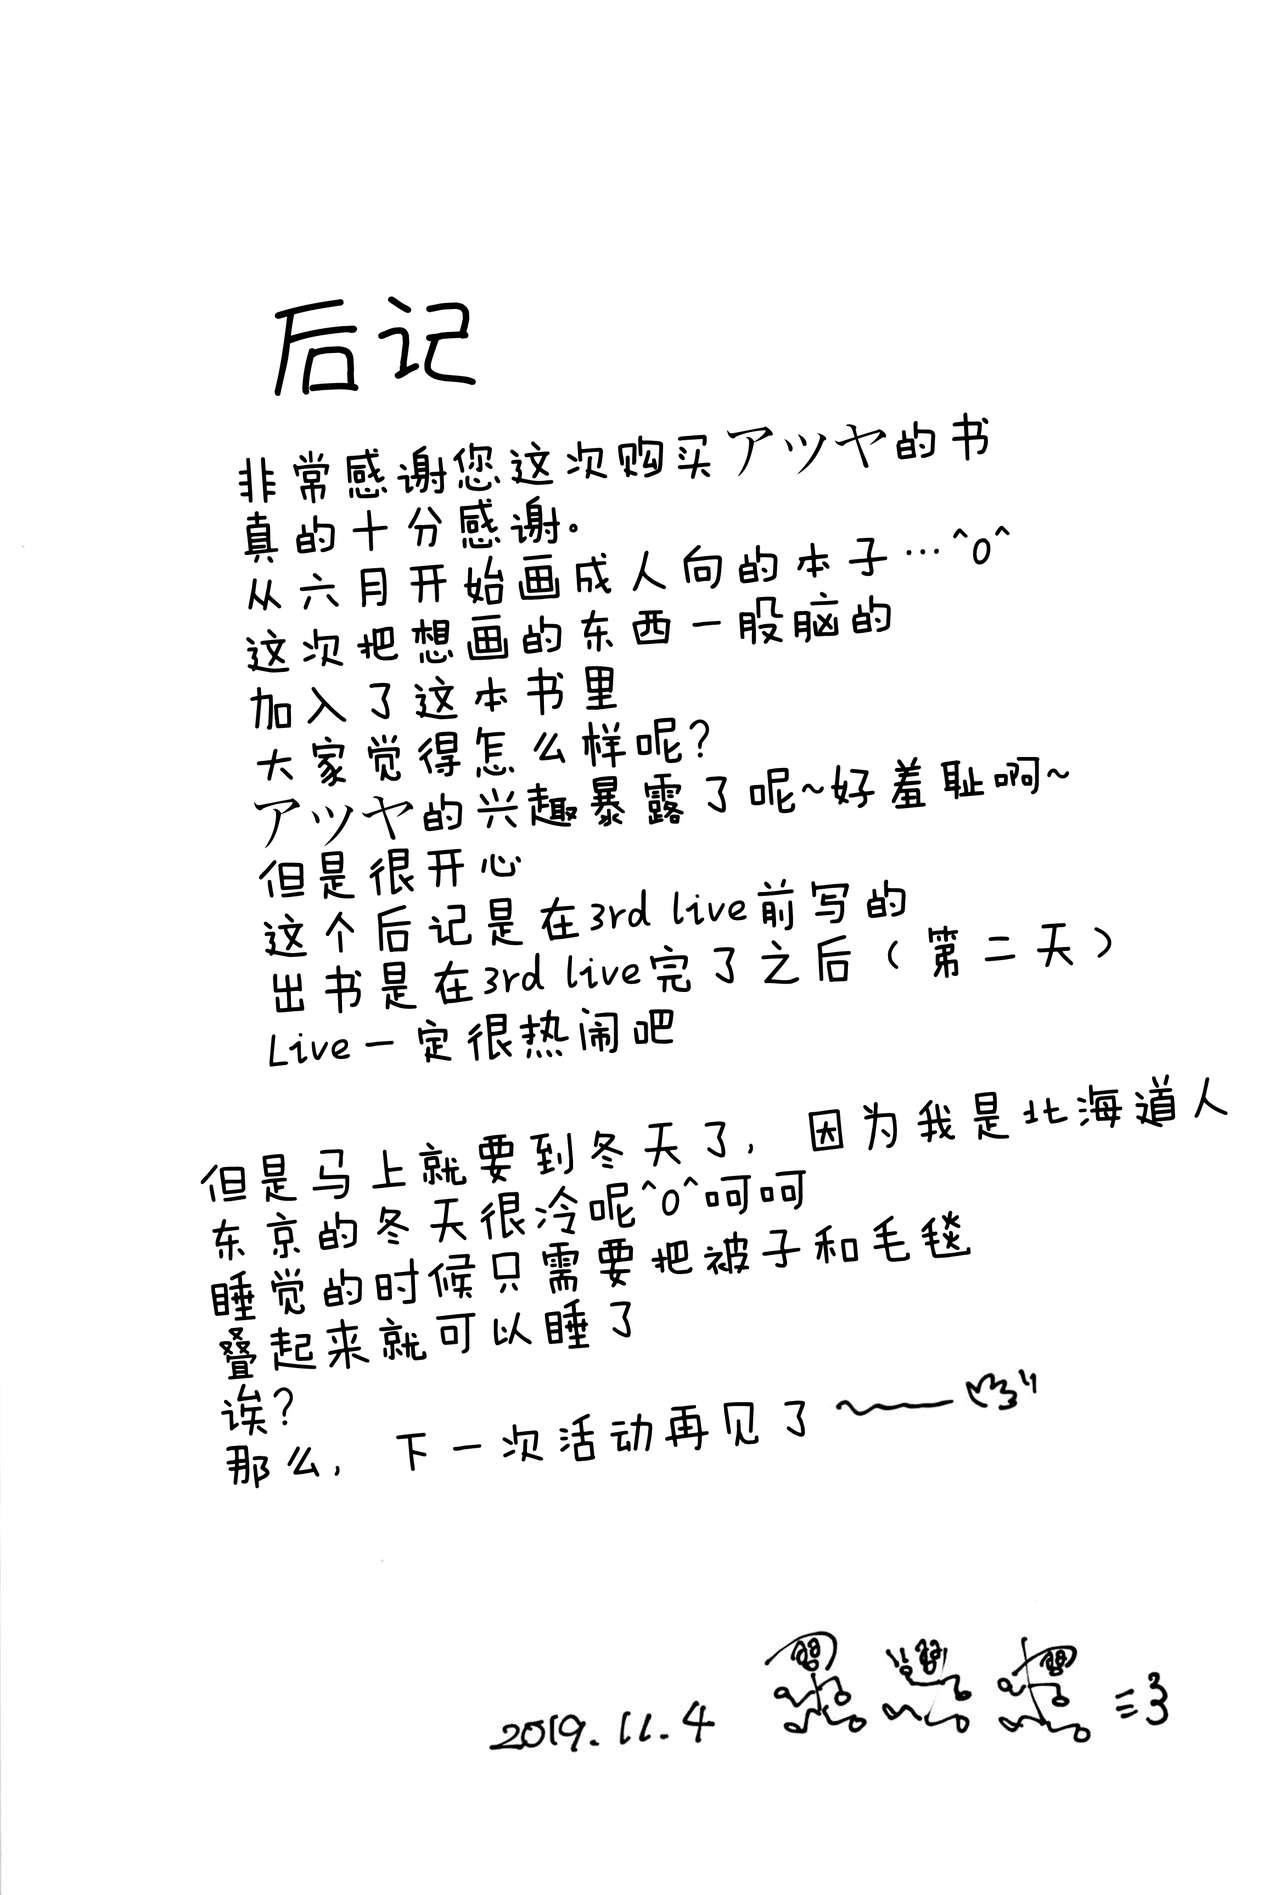 后记
非常感谢您这次购买アツヤ的书
真的十分感谢。
从六月开始画成人向的本子…^o^
这次把想画的东西一股脑的
加入了这本书里
大家觉得怎么样呢?
アツヤ的兴趣暴露了呢~好羞耻啊~
但是很开心
这个后记是在3rd live前写的
出书是在3rd live完了之后（第二天）
Live一定很热闹吧
但是马上就要到冬天了, 因为我是北海道人
东京的冬天很冷呢^o^呵呵
睡觉的时候只需要把被子和毛毯
叠起来就可以睡了
诶?
那么, 下一次活动再见了
2019.11.4